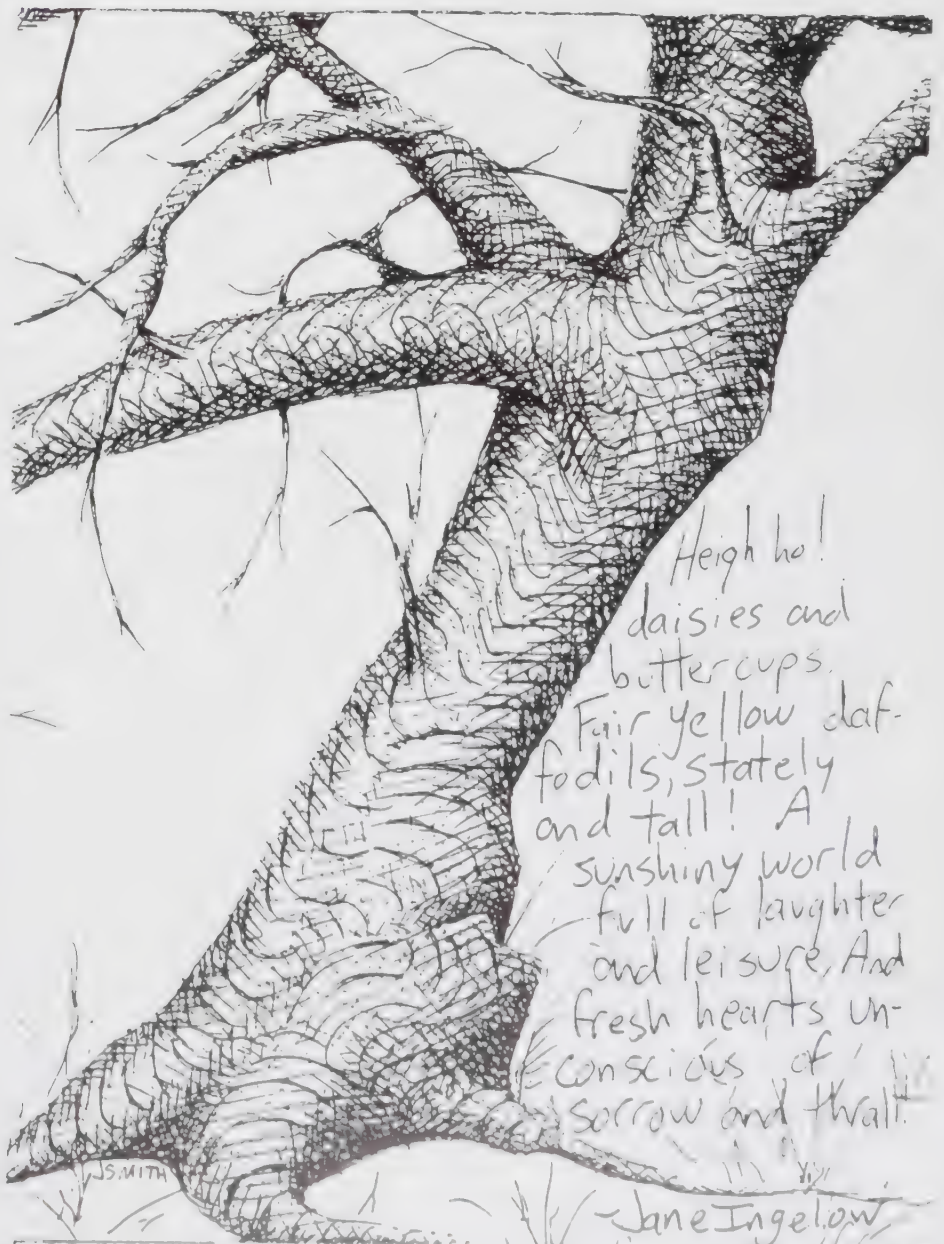 Heigh ho!
daisies and
buttercups.
Fair yellow daf-
fodils, stately
and tall! A
sunshiny world
full of laughter
and leisure, And
fresh hearts un-
conscious of
sorrow and thrall!
-Jane Ingelow
JSMITH